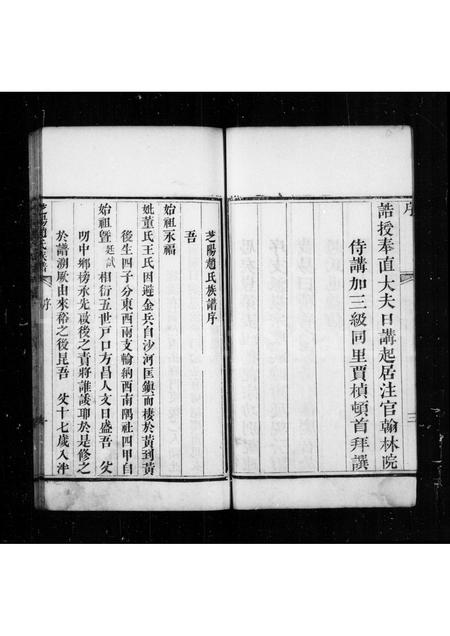 序
誥授奉直大夫日講起居注官翰林院
侍講加三級同里賈楨頓首拜譔
三
芝陽趙氏族譜序
吾
始祖永福
妣董氏王氏因避金兵自沙河匡鎮而棲於黃到黃
後生四子分東西南支輸納西南隅社四甲自
始祖暨廷試相衍五世戶口方昌人文日盛吾 父
叨中鄉榜承先啟後之責將誰諉耶於是修之
於譜溯厥由來裕之後昆吾 父十七歲入泮
芝陽趙氏族譜
序